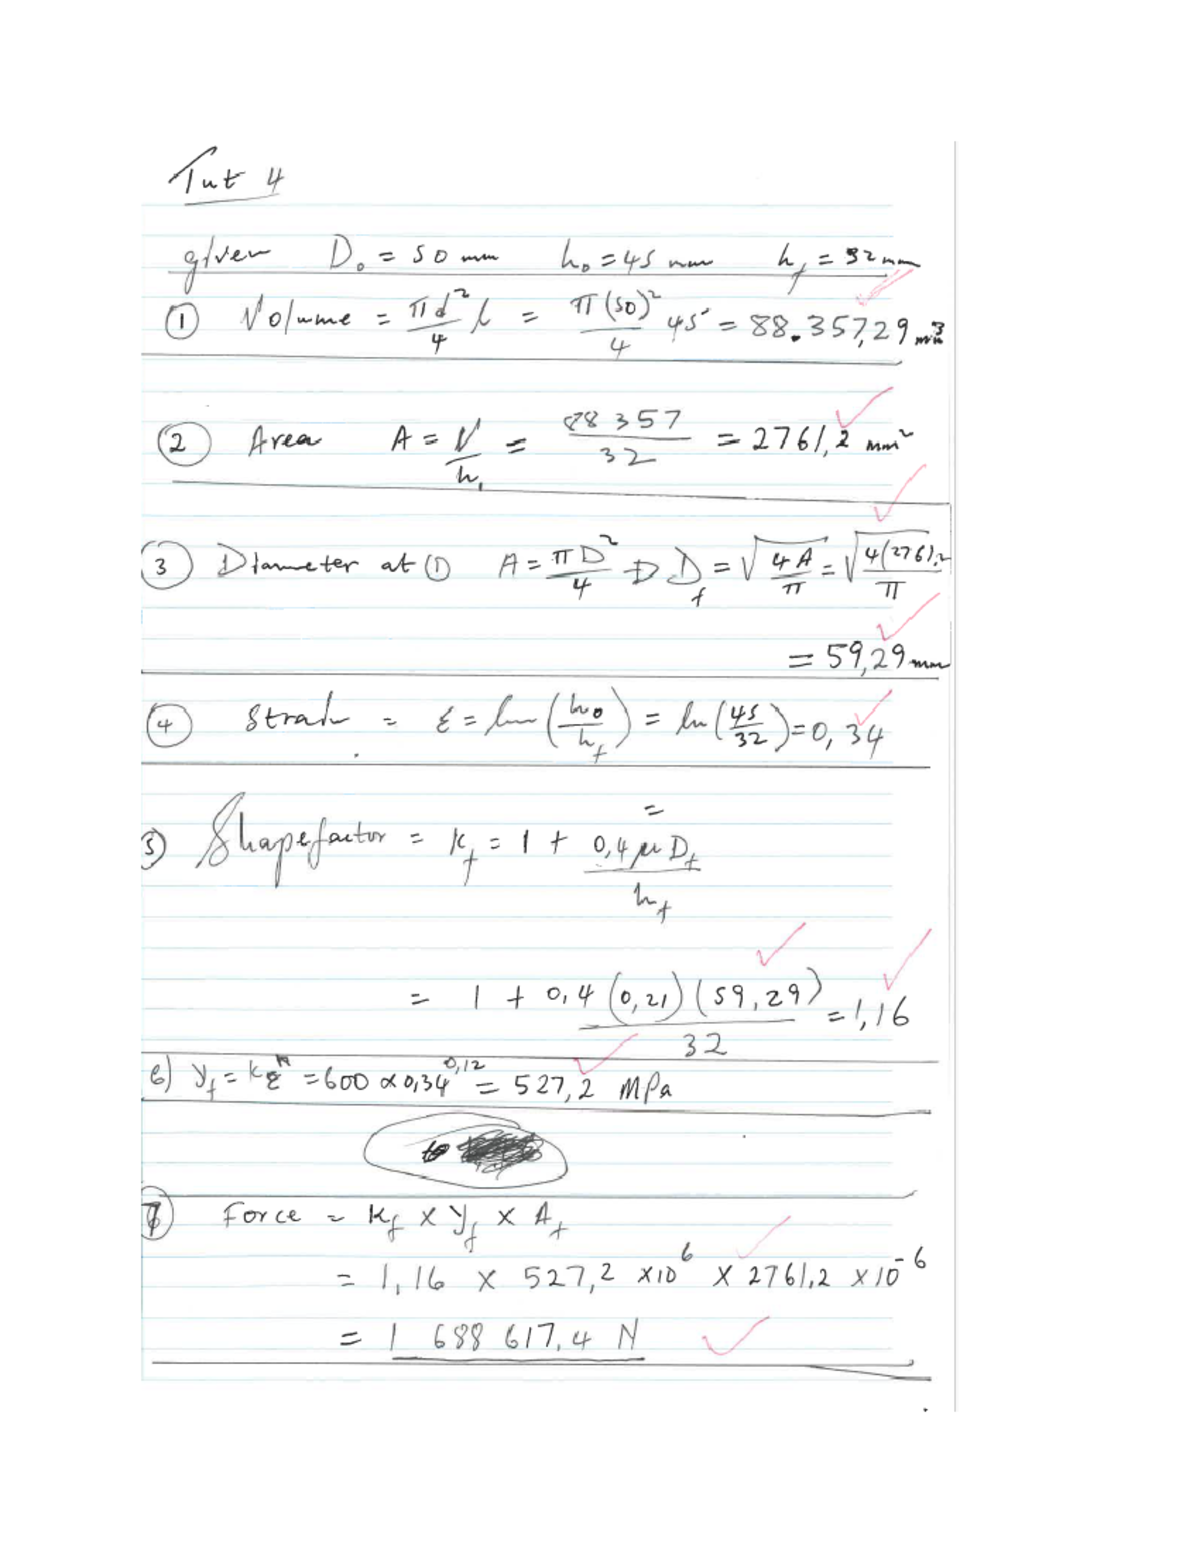 Tut 4
given D₀ = 50 mm h₀ = 45 mm h_f = 32 mm
① Volume = πd²/4 l = π(50)²/4 45 = 88.357,29 mm³
② Area A = V/h₁ = 88 357/32 = 2761,2 mm²
③ Diameter at ① A = πD²/4 D D_f = √(4A/π) = √(4(2761,2/π
= 59,29 mm
④ Strain = ε = ln (h₀/h_f) = ln (45/32) = 0,34
=
5) Shapefactor = K_f = 1 + 0,4 μ D_f/h_f
= 1 + 0,4 (0,21) (59,29)/32 = 1,16
6) Y_f = Kεⁿ = 600 x 0,34^0,12 = 527,2 MPa
⑦ Force = K_f x Y_f x A_f
= 1,16 x 527,2 x10⁶ x 2761,2 x10⁻⁶
= 1 688 617,4 N